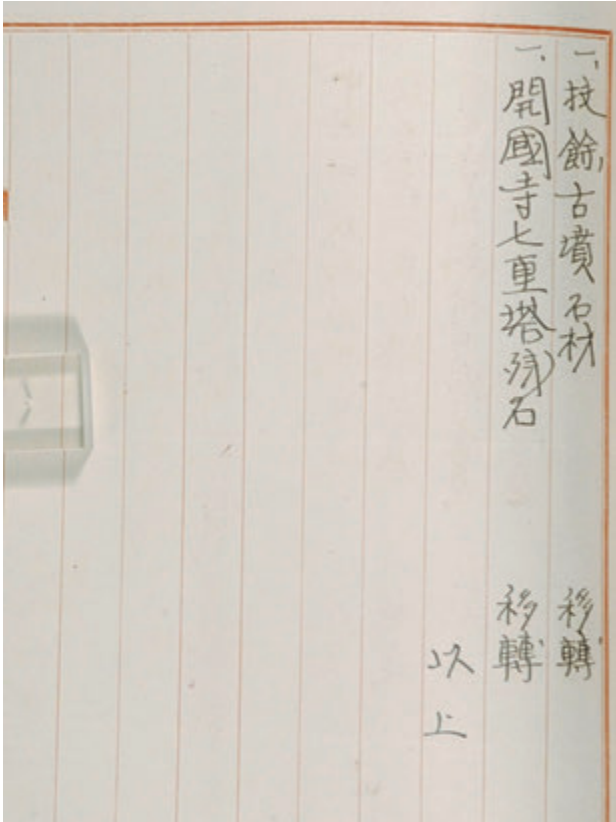 一、技餘古墳石材 移轉
一、開國寺七重塔殘石 移轉
以上